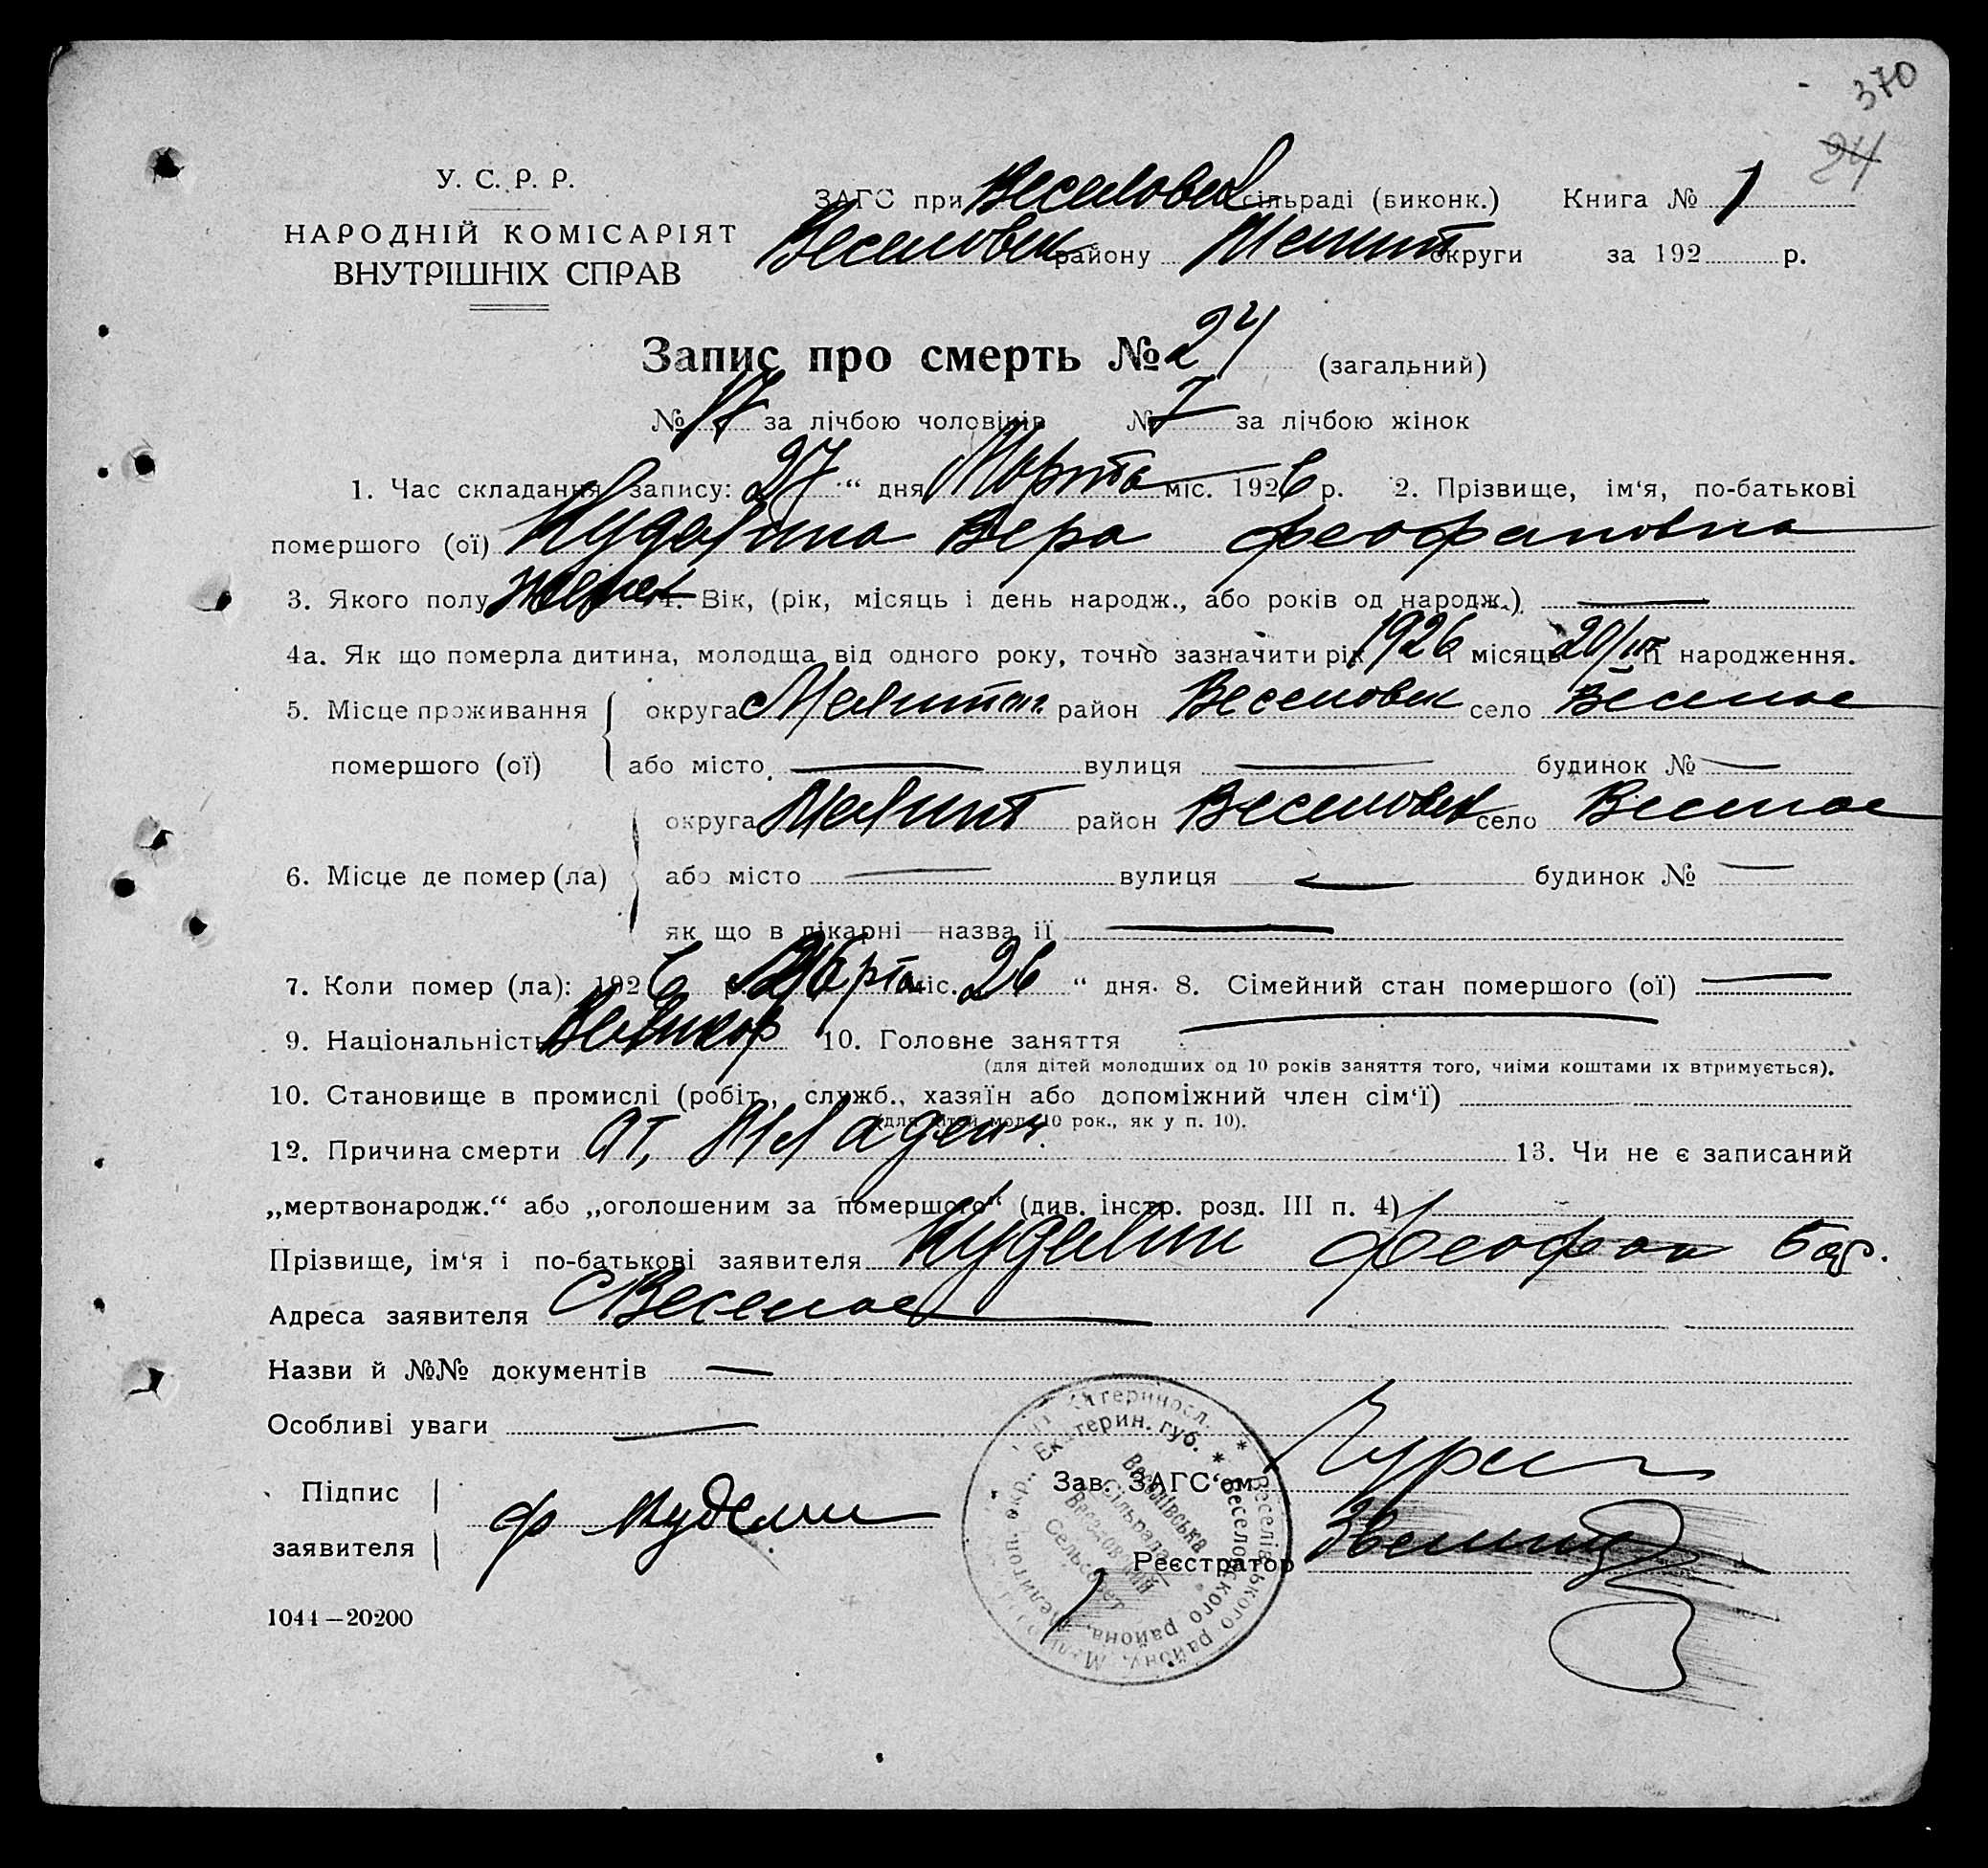 370
24
У. С. Р. Р.
НАРОДНІЙ КОМІСАРІЯТ
ВНУТРІШНІХ СПРАВ
ЗАГС при Веселовск сільраді (виконк.) Книга № 1
Веселовск району Мелит округи за 192 р.
Запис про смерть № 24 (загальний)
№ 17 за лічбою чоловіків № 7 за лічбою жінок
1. Час складання запису: 27 “ дня Марта міс. 1926 р. 2. Прізвище, ім‘я, по-батькові
помершого (ої) Куделина Вера Феофановна
3. Якого полу женск 4. Вік, (рік, місяць і день народж., або років од народж.) —
4а. Як що померла дитина, молодща від одного року, точно зазначити рік 1926 місяць 20/III її народження.
5. Місце проживання округа Мелитоп. район Веселовск село Веселое
помершого (ої) або місто — вулиця — будинок № —
округа Мелит район Веселовск село Веселое
6. Місце де помер (ла) або місто — вулиця — будинок № —
як що в лікарні — назва її —
7. Коли помер (ла): 1926 р. Марта міс. 26 “ дня. 8. Сімейний стан помершого (ої) —
9. Національність Великор 10. Головне заняття —
(для дітей молодших од 10 років заняття того, чиїми коштами іх втримується).
10. Становище в промислі (робіт., служб., хазяїн або допоміжний член сім‘ї)
(для дітей мол. 10 рок., як у п. 10).
12. Причина смерти От, Младенч. 13. Чи не є записаний
„мертвонародж.“ або „оголошеним за померщого“ (див. інстр. розд. III п. 4)
Прізвище, ім‘я і по-батькові заявителя Куделин Феофан
Адреса заявителя С Веселое
Назви й №№ документів —
Особливі уваги —
Підпис
заявителя
Ф Кудели
Зав. ЗАГС‘ом
Реєстратор
Екатерин. губ. * Веселовского района, Мелитоп. окр.
Веселівського району,
Веселівська
Сільрада
Веселовский
Сельсовет
1044—20200